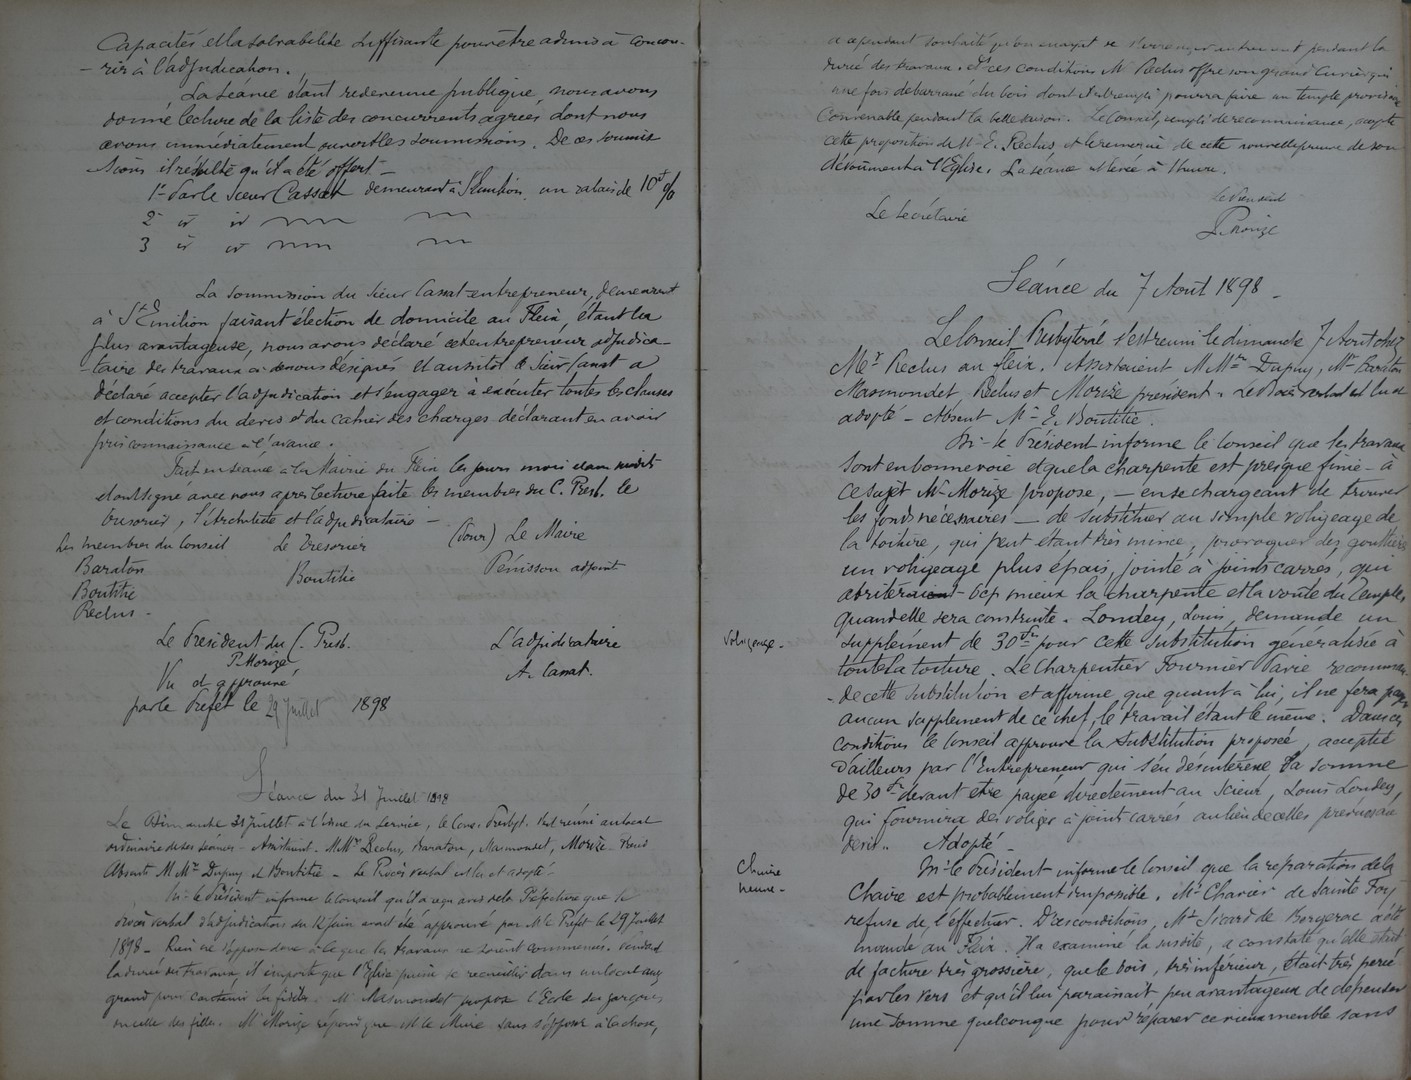 Capacités et la solvabilité suffisante pour être admis à concou-
-rir à l'adjudication.
La séance étant redevenue publique, nous avons
donné lecture de la liste des concurrents agréés, dont nous
avons immédiatement ouvert les soumissions. De ces soumis
sions il résulte qu'il a été offert -
1° Par le Sieur Cassat demeurant à St Emilion, un rabais de 10 %
2 id id
3 id id
La soumission du Sieur Cassat entrepreneur, demeurant
à St Emilion faisant élection de domicile au Fleix, étant la
plus avantageuse, nous avons déclaré cet entrepreneur adjudica-
-taire des travaux ci-dessus désignés et aussitôt le Sieur Cassat a
déclaré accepter l'adjudication et s'engager à exécuter toutes les clauses
et conditions du devis et du cahier des charges déclarant en avoir
pris connaissance à l'avance.
Fait en séance à la Mairie du Fleix les jours mois et an susdits
et ont signé avec nous après lecture faite les membres du C. Presb. le
trésorier, l'Architecte et l'adjudicataire -
Les membres du Conseil Le Trésorier (Pour) Le Maire
Baraton Boutitie Pénisson adjoint
Boutitie
Reclus -
Le Président du C. Presb. L'adjudicataire
P. Morize A. Cassat.
Vu et approuvé
par le Préfet le 29 Juillet 1898
Séance du 31 Juillet 1898
Le Dimanche 31 Juillet à l'issue du service, le Cons. Presbyt. s'est réuni au local
ordinaire de ses séances - Assistaient. M Mrs Reclus, Baraton, Masmondet, Morize - Prési
Absents M Mrs Dupuy et Boutitie - Le Procès verbal est lu et adopté.
Mr le Président informe le Conseil qu'il a reçu avis de la Préfecture que le
procès verbal d'adjudication du 12 Juin avait été approuvé par Mr le Préfet le 29 Juillet
1898 - Rien ne s'oppose donc à ce que les travaux ne soient commencés. Pendant
la durée des travaux, il importe que l'Eglise puisse se recueillir dans un local assez
grand pour contenir les fidèles. Mr Masmondet propose l'Ecole des garçons
ou celle des filles. Mr Morize répond que Mr le Maire sans s'opposer à la chose,
a cependant souhaité qu'on essayât de s'arranger autrement pendant la
durée des travaux. Ds ces conditions Mr Reclus offre son grand Cuvier qui
une fois débarrassé du bois dont il est rempli pourra faire un temple provisoire
Convenable pendant la belle saison. Le Conseil, rempli de reconnaissance, accepte
cette proposition de Mr E. Reclus et le remercie de cette nouvelle preuve de son
dévouement à l'Eglise. La séance est levée à 1 heure.
Le Secrétaire Le Président
P. Morize
Séance du 7 Août 1898 -
Le Conseil Presbytéral s'est réuni le dimanche 7 Août chez
Mr Reclus au Fleix. Assistaient M Mrs Dupuy, Mr Baraton
Masmondet, Reclus et Morize président. Le Procès verbal est lu et
adopté - Absent Mr E. Boutitie.
Mr le Président informe le Conseil que les travaux
sont en bonne voie et que la charpente est presque finie - à
ce sujet Mr Morize propose, - en se chargeant de trouver
les fonds nécessaires - de substituer au simple voligeage de
la toiture, qui peut étant très mince, provoquer des gouttières
un voligeage plus épais, jointé à joints carrés, qui
abriterait bcp mieux la charpente et la voute du Temple,
quand elle sera construite. Londey, Louis, demande un
Voligeage - supplément de 30 frs pour cette substitution généralisée à
toute la toiture. Le Charpentier Fournier Pavie recomman-
-de cette substitution et affirme que quant à lui, il ne fera payer
aucun supplément de ce chef, le travail étant le même. Dans ces
conditions le Conseil approuve la substitution proposée, acceptée
d'ailleurs par l'Entrepreneur qui s'en désintéresse la somme
de 30 frs devant être payée directement au Scieur, Louis Londey,
qui fournira des voliges à joints carrés au lieu de celles prévues au
devis. Adopté -
Chaire neuve - Mr le Président informe le Conseil que la réparation de la
Chaire est probablement impossible. Mr Charier de Sainte Foy
refuse de l'effectuer. Ds ces conditions, Mr Sicard de Bergerac a été
mandé au Fleix. Il a examiné la susdite, a constaté qu'elle était
de facture très grossière, que le bois, très inférieur, était très percé
par les vers et qu'il lui paraissait peu avantageux de dépenser
une somme quelconque pour réparer ce vieux meuble sans